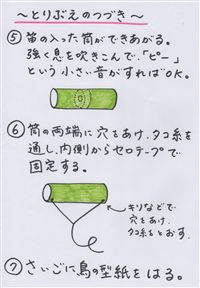 〜とりぶえのつづき〜
⑤ 笛の入った筒ができあがる。
強く息を吹きこんで、「ピー」
という小さい音がすればOK。
⑥ 筒の両端に穴をあけ、タコ糸
を通し、内側からセロテープで
固定する。
キリなどで
穴をあけ、
タコ糸をとおす。
⑦ さいごに鳥の型紙をはる。